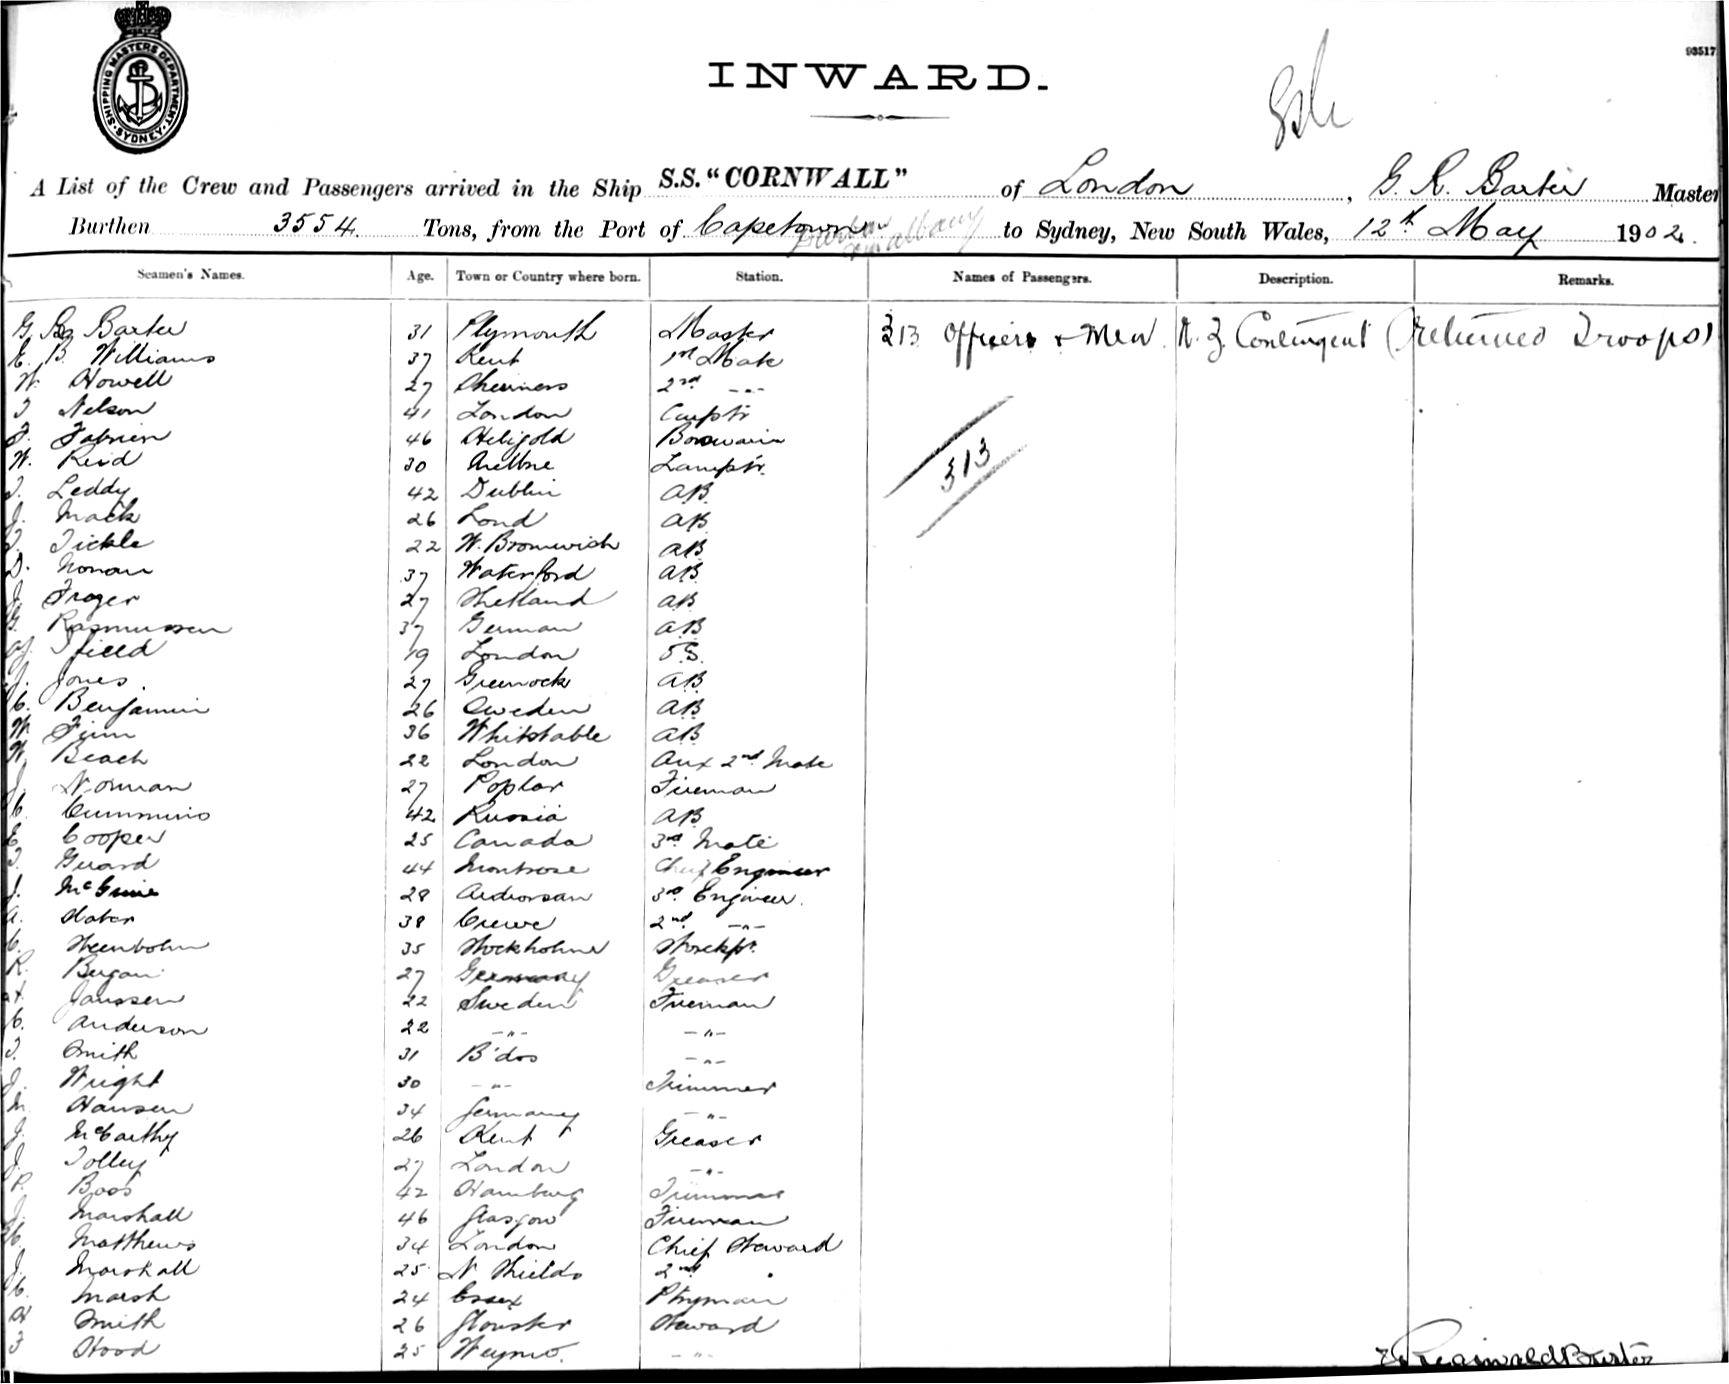 SHIPPING MASTERS DEPARTMENT
SYDNEY
93517
INWARD.
A List of the Crew and Passengers arrived in the Ship S.S. “CORNWALL” of London, G. R. Barter Master
Burthen 3554 Tons, from the Port of Capetown to Sydney, New South Wales, 12th May 1902.
Seamen's Names. Age. Town or Country where born. Station. Names of Passengers. Description. Remarks.
G. R. Barter 31 Plymouth Master 313 Officers & Men N. Z. Contingent (returned Troops)
E. B. Williams 37 Kent 1st Mate
W. Howell 27 Sheerness 2nd -"-
T Nelson 41 London Carptr
F. Fabrien 46 Heligold Boswain
313
W. Reid 30 Lamptr.
T. Leddy 42 Dublin A.B.
J. Mack 26 Lond AB
T. Tickle 22 W. Bromwich AB
D. Nonan 37 Waterford AB.
J. Frazer 27 Shetland AB
G. Rasmussen 37 German AB
Ifield 19 London O.S.
J. Jones 27 Greenock AB.
C. Benjamin 26 Sweden AB
W. Finn 36 Whitstable AB
W. Beach 22 London Aux 2nd Mate
J. Norman 27 Poplar Fireman
C. Cummins 42 Russia AB
E. Cooper 25 Canada 3rd Mate
T. Guard 44 Montrose Chief Engineer
J. 28 Ardrossan 3rd Engineer.
A. Slater 38 Crewe 2nd -"-
C. Steenbohm 35 Stockholm Storekpr.
R. Bugan 27 Germany Greaser
Janssen 22 Sweden Fireman
C. Anderson 22 -"- -"-
T. Smith 31 B'dos -"-
J. Wright 30 -"- Trimmer
M. Hansen 34 Germany -"-
J. McCarthy 26 Kent Greaser
J. Tolley 27 London -"-
P. Boos 42 Hamburg Trimmer
J. Marshall 46 Glasgow Fireman
Matthews 34 London Chief Steward
J. Marshall 25 N Shields 2nd "
C. Marsh 24 Essex Ptryman
H Smith 26 Glouster Steward
F Hood 25 Weymo. -"-
Reginald Barter